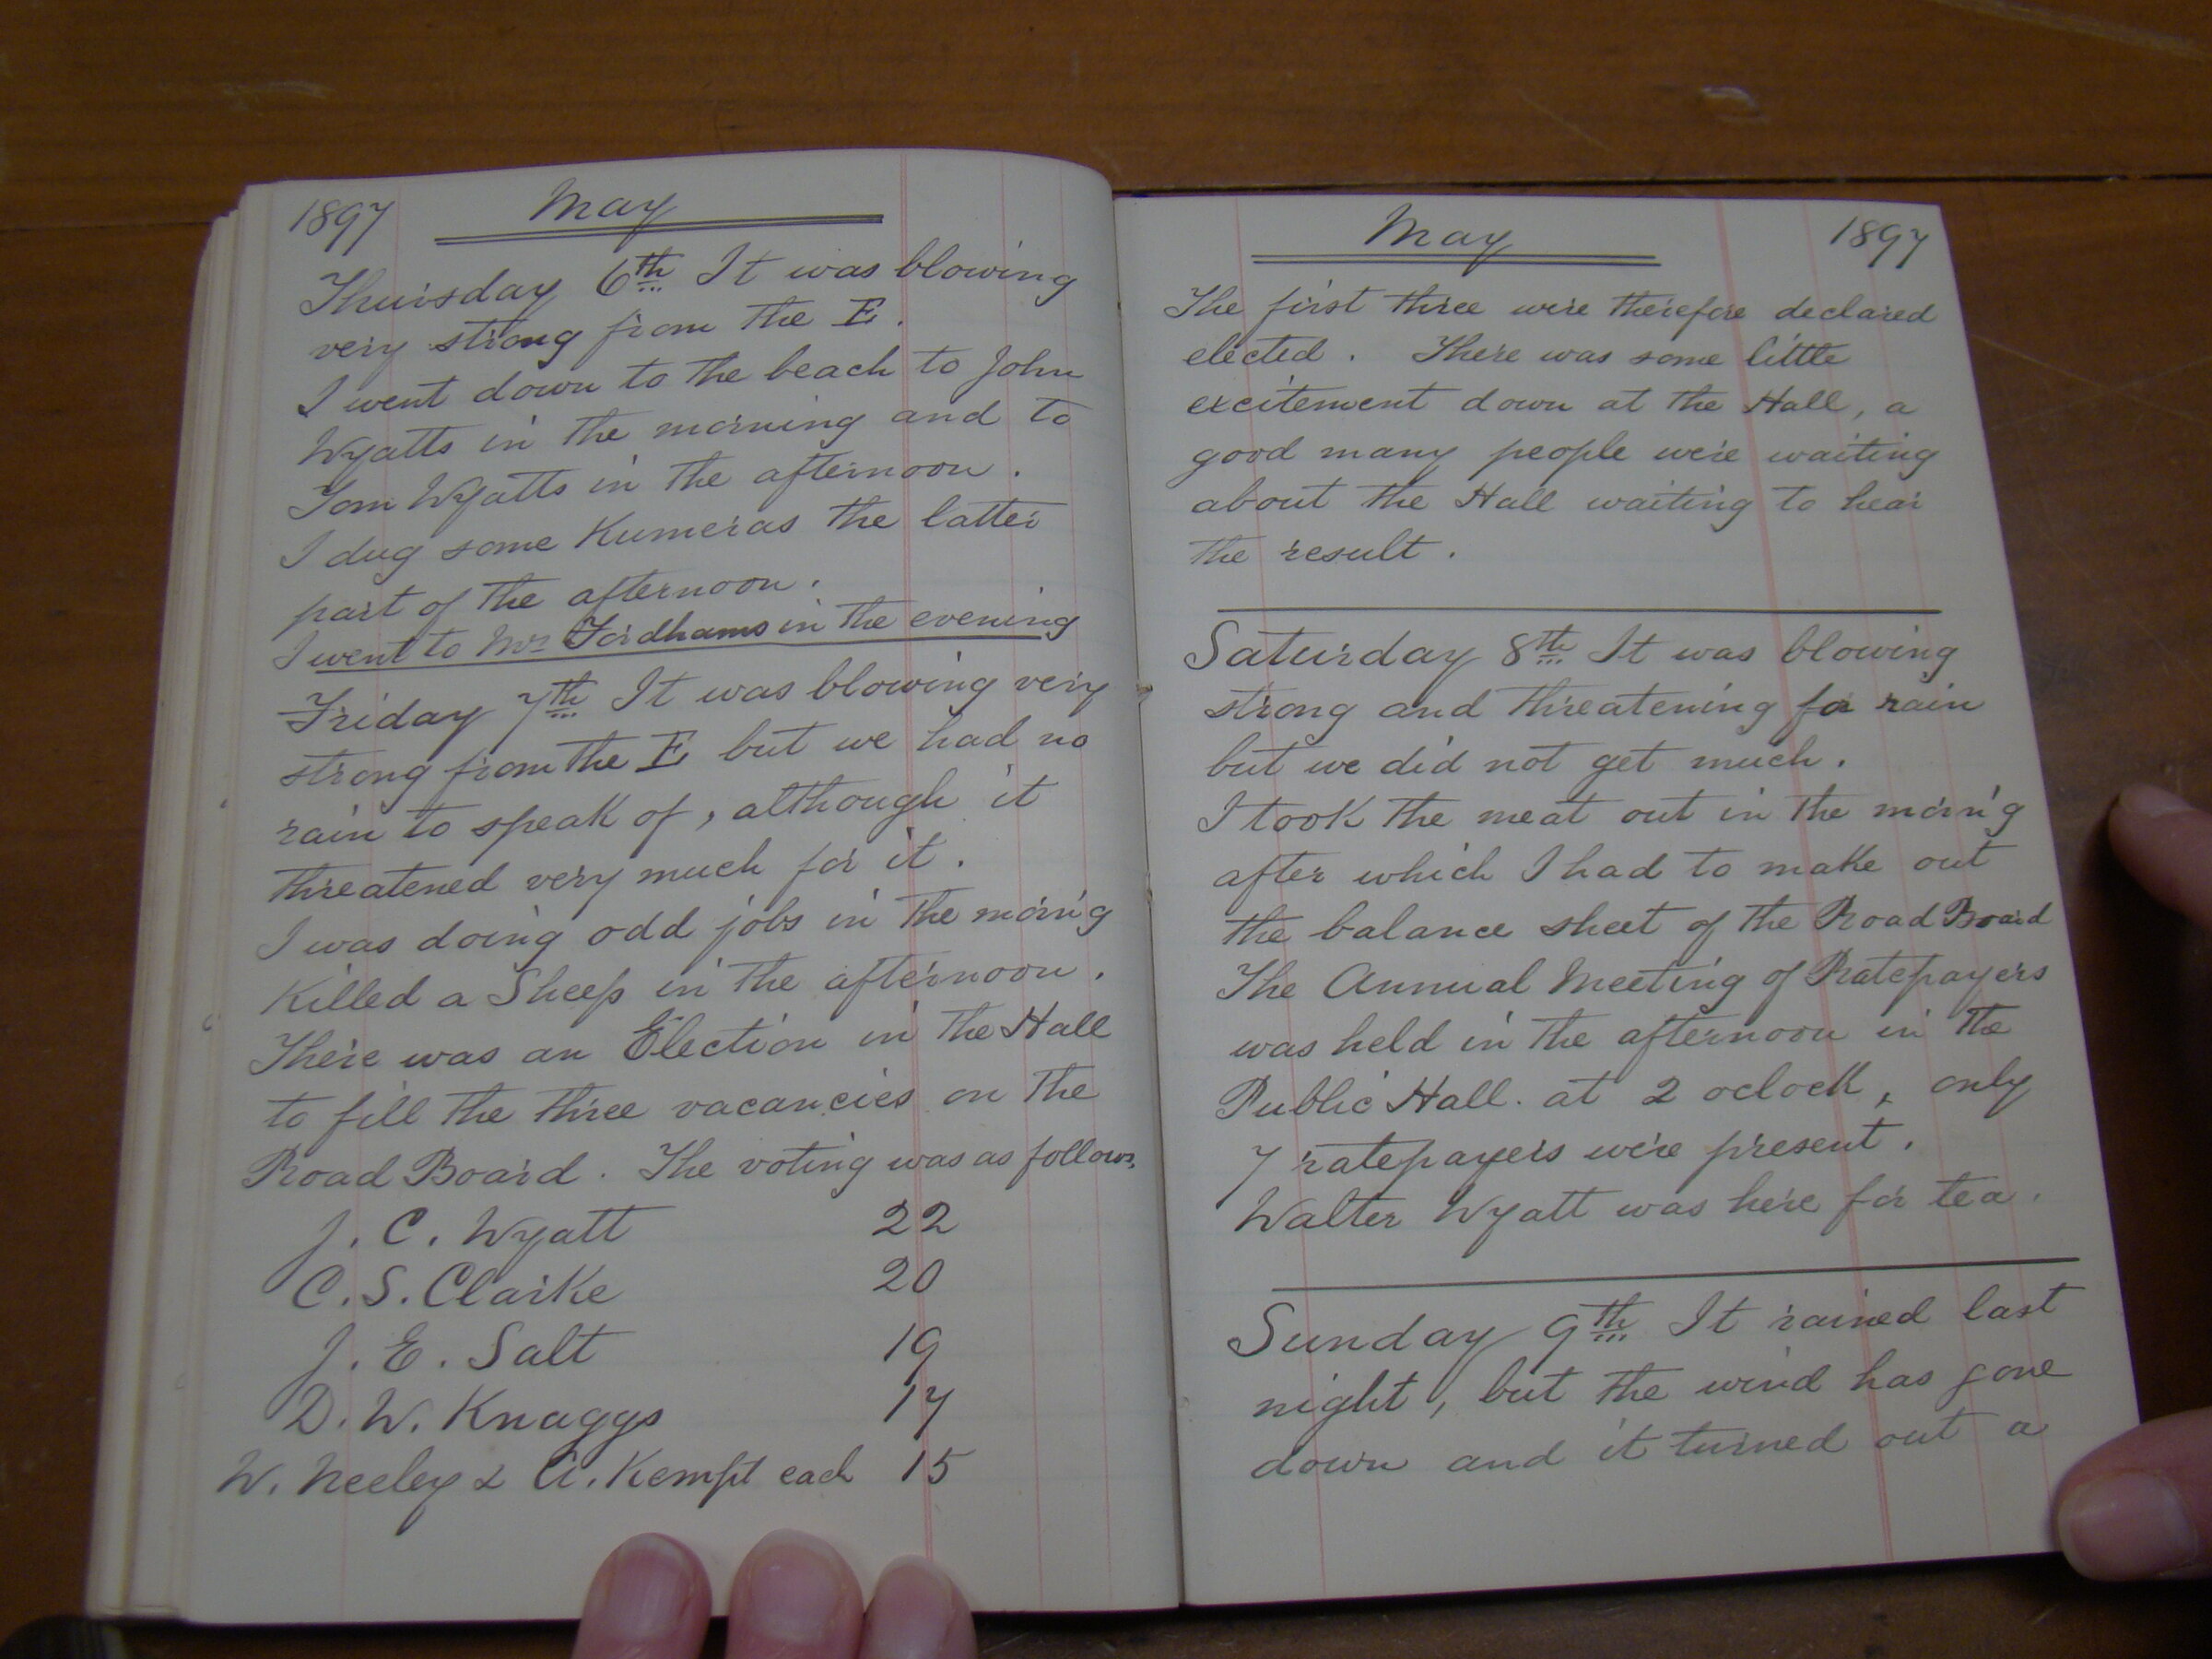 1897 May
Thursday 6th It was blowing
very strong from the E.
I went down to the beach to John
Wyatts in the morning and to
Tom Wyatts in the afternoon.
I dug some Kumeras the latter
part of the afternoon.
I went to Mrs Fordhams in the evening
Friday 7th It was blowing very
strong from the E but we had no
rain to speak of, although it
threatened very much for it.
I was doing odd jobs in the morn'g
Killed a Sheep in the afternoon.
There was an Election in the Hall
to fill the three vacancies on the
Road Board. The voting was as follows.
J. C. Wyatt 22
C. S. Clarke 20
J. E. Salt 19
D. W. Knaggs 17
W. Neeley & A. Kempt each 15
May 1897
The first three were therefore declared
elected. There was some little
excitement down at the Hall, a
good many people were waiting
about the Hall waiting to hear
the result.
Saturday 8th It was blowing
strong and threatening for rain
but we did not get much.
I took the meat out in the morn'g
after which I had to make out
the balance sheet of the Road Board
The Annual Meeting of Ratepayers
was held in the afternoon in the
Public Hall. at 2 oclock, only
7 ratepayers were present.
Walter Wyatt was here for tea.
Sunday 9th It rained last
night, but the wind has gone
down and it turned out a